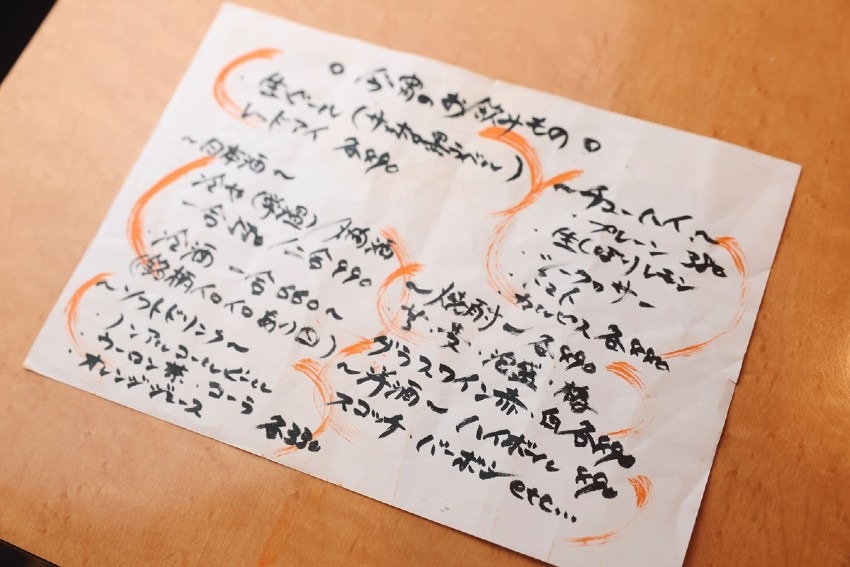 ○ 今宵のお飲みもの ○
・生ビール (サッポロ黒ラベル)
レッドアイ 各
～日本酒～
冷や (常温) / 燗酒
一合 / 二合 990
・冷酒 一合 880～
(銘柄イロイロあり〼)
～ソフトドリンク～
・ノンアルコールビール
・ウーロン茶・コーラ
・オレンジジュース 各330
～チューハイ～
・プレーン
・生(しぼり)レモン
・サワー
・カルピス 各
～焼酎～ 各
芋・麦・泡盛・梅
グラスワイン赤・白 各
～洋酒～ ハイボール
スコッチ・バーボン etc...